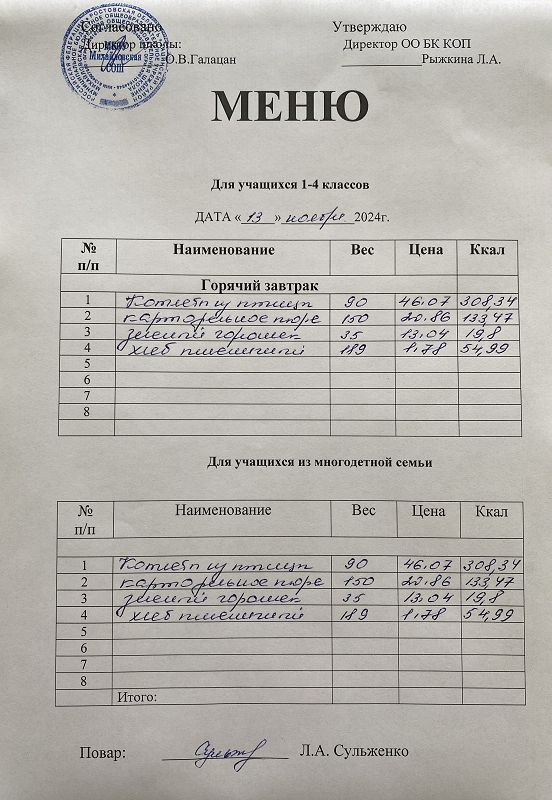 Согласовано Утверждаю
Директор школы: Директор ОО БК КОП
О.В.Галацан Рыжкина Л.А.
МЕНЮ
Для учащихся 1-4 классов
ДАТА « 13 » ноября 2024г.
№ п/п Наименование Вес Цена Ккал
Горячий завтрак
1 Котлеты из птицы 90 46.07 308,34
2 картофельное пюре 150 20.86 133,47
3 зеленый горошек 35 13.04 19,8
4 хлеб пшеничный 189 1.78 54,99
5
6
7
8
Для учащихся из многодетной семьи
№ п/п Наименование Вес Цена Ккал
1 Котлеты из птицы 90 46.07 308,34
2 картофельное пюре 150 20.86 133,47
3 зеленый горошек 35 13.04 19,8
4 хлеб пшеничный 189 1.78 54,99
5
6
7
8
Итого:
Повар: Л.А. Сульженко